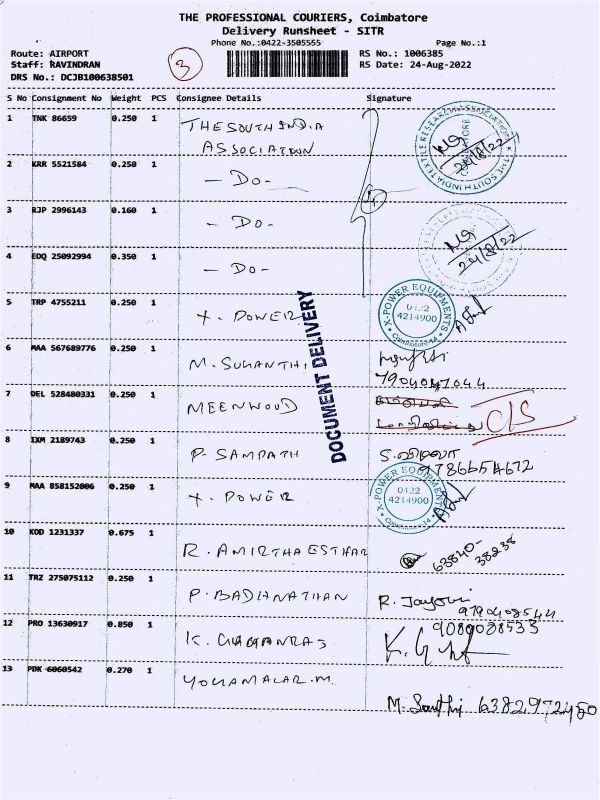 THE PROFESSIONAL COURIERS, Coimbatore
Delivery Runsheet - SITR
Phone No.:0422-3505555 Page No.:1
Route: AIRPORT RS No.: 1006385
Staff: RAVINDRAN 3 RS Date: 24-Aug-2022
DRS No.: DCJB100638501
S No Consignment No Weight PCS Consignee Details Signature
1 TNK 86659 0.250 1 THE SOUTH INDIA
ASSOCIATION
THE SOUTH INDIA TEXTILE RESEARCH ASSOCIATION
COIMBATORE
24/8/22
2 KRR 5521584 0.250 1 - DO -
3 RJP 2996143 0.160 1 - DO -
24/8/22
4 EDQ 25092994 0.350 1 - DO -
5 TRP 4755211 0.250 1 X. POWER
X-POWER EQUIPMENTS
0422
4214900
Coimbatore-14
DOCUMENT DELIVERY
6 MAA 567689776 0.250 1 M. SUKANTHI
7904047044
7 DEL 528480331 0.250 1 MEENWOOD
8 IXM 2189743 0.250 1 P. SAMPATH
9786554672
9 MAA 858152006 0.250 1 X. POWER
X-POWER EQUIPMENTS
0422
4214900
Coimbatore-14
10 KOD 1231337 0.675 1 R. AMIRTHA ESTHAR 63840-
38238
11 TRZ 275075112 0.250 1 P. BADHNATHAN R. Jayasri
9790408544
12 PRO 13630917 0.850 1 9089028533
13 PDK 6060542 0.270 1 YOKAMALAR. M.
M. Santhi 6382972450